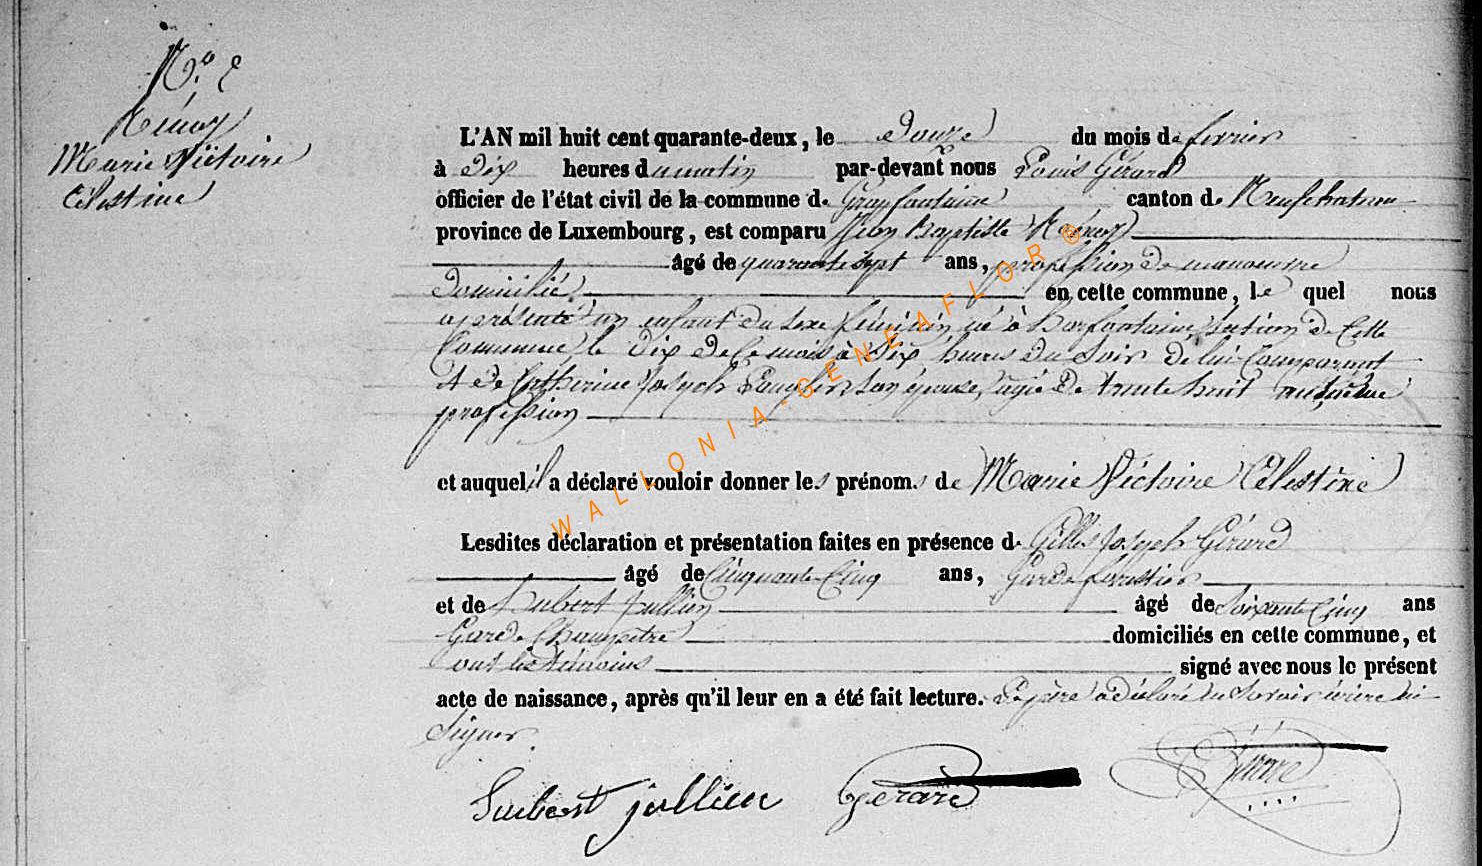 N.°
Rénoy
Marie Victoire
Célestine
L'AN mil huit cent quarante-deux, le douze du mois de fevrier
à dix heures du matin par-devant nous Louis Gérard
officier de l'état civil de la commune de Grapfontaine canton de Neufchateau
province de Luxembourg, est comparu Jean Baptiste Rénoy
âgé de quarante sept ans, profession de manoeuvre
domicilié en cette commune, le quel nous
a présenté un enfant du sexe féminin né à harfontaine section de Cette
Commune le dix de Ce mois à Six heures du Soir de lui Comparant
et de Catherine Joseph son épouse, agée de trente huit ans
profession
et auquel il a déclaré vouloir donner les prénoms de Marie Victoire Célestine
Lesdites déclaration et présentation faites en présence de Gilles Joseph Gérard
âgé de Cinquante Cinq ans, Garde forestier
et de hubert Jullien âgé de Soixante Cinq ans
Garde Champêtre domiciliés en cette commune, et
ont les témoins signé avec nous le présent
acte de naissance, après qu'il leur en a été fait lecture. Le père a déclaré ne Savoir écrire ni
Signer.
hubert jullien Gerard Gérard
WALLONIA-GENEAFLOR ©